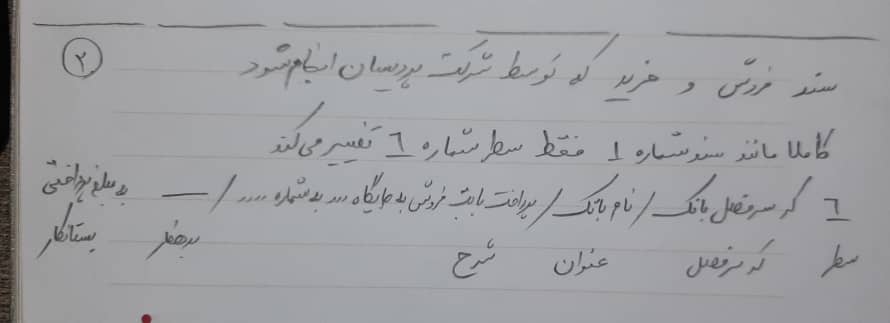 ۲
سند فروش و خرید که توسط شرکت پردیسان انجام شود
کاملا مانند سند شماره ۱ فقط سطر شماره ٦ تغییر می‌کند
٦ کد سرفصل بانک / نام بانک / پرداخت بابت فروش به جایگاه ... به شماره .... / — به مبلغ پرداختی
سطر کد سرفصل عنوان شرح بدهکار بستانکار